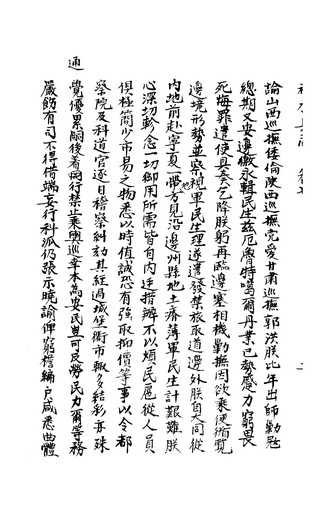 諭山西巡撫倭倫陝西巡撫党愛甘肅巡撫郭洪朕比年出師勦寇
總期乂安邊徼永輯民生茲厄魯特噶爾丹業已勢蹙力窮畏
死悔罪遣使具奏乞降朕躬再臨邊塞相機勦撫因欲乘便循覽
邊境形勢並察視軍民生理遂遣發禁旅取道邊外朕自大同從
內地前赴寧夏一帶方見沿邊州縣地土瘠薄軍民生計艱難朕
心深切軫念一切御用所需皆自內廷措辦不以煩民扈從人員
俱極簡少市易之物悉以時值誠恐有強取抑價等事以令都
察院及科道官逐日稽察糾劾其經過城堡衢市輒多結彩亦殊
通覺優累嗣後着行禁止乘輿巡幸本為安民豈可反勞民力爾等務
嚴飭有司不得借端妄行科派仍張示曉諭俾窮簷編戶咸悉曲體